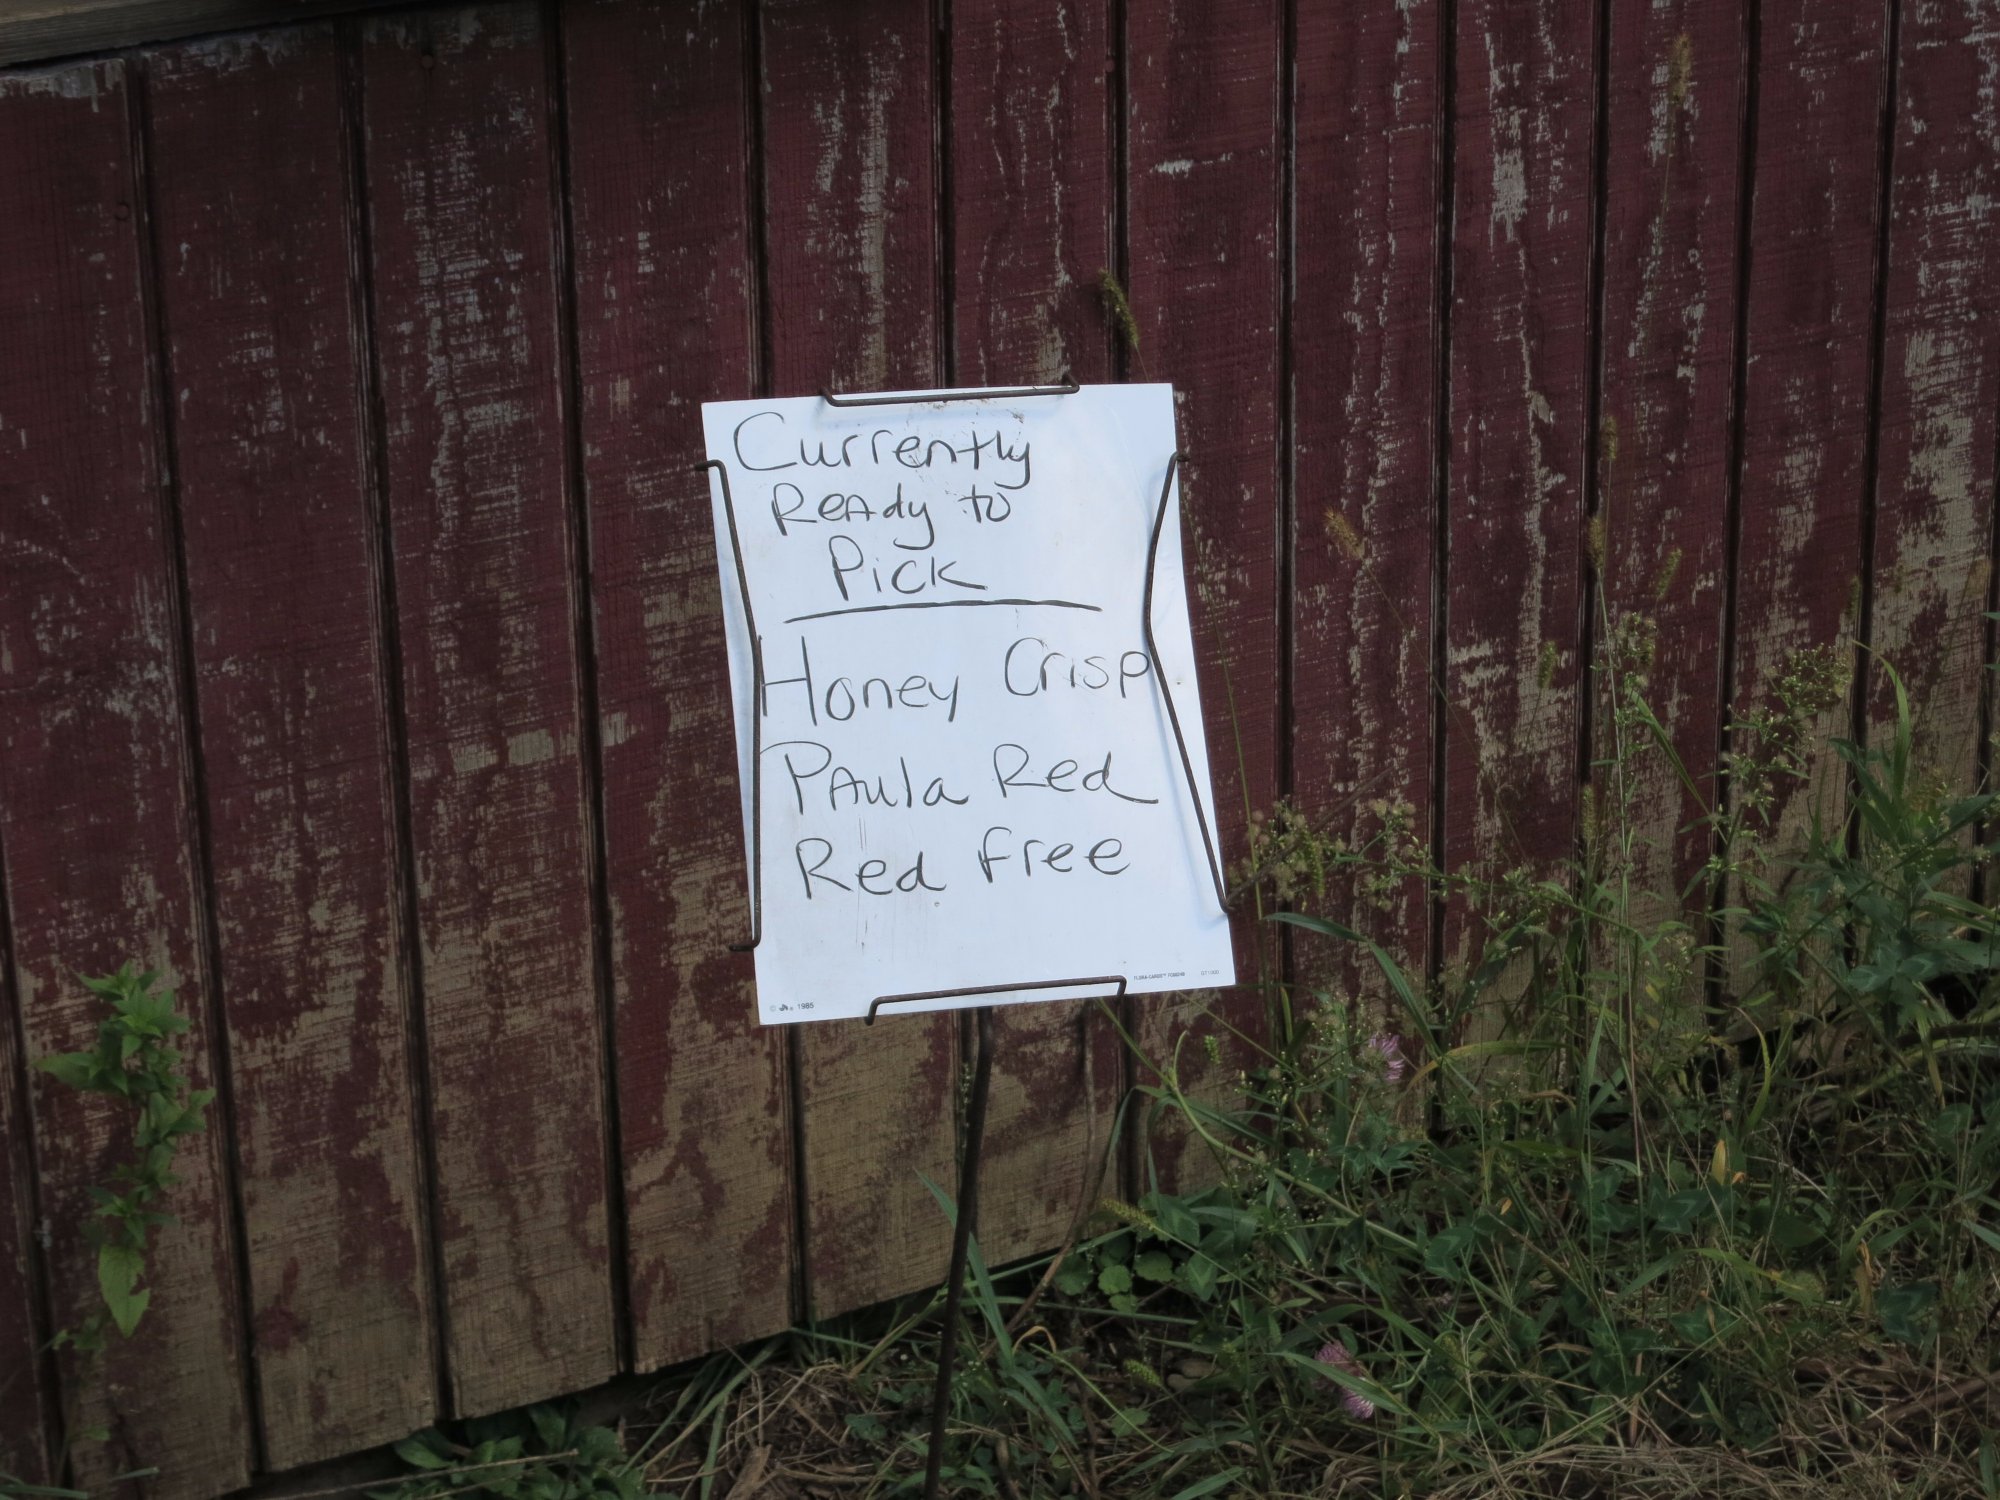 Currently
Ready to
Pick
Honey Crisp
Paula Red
Red Free
© 1985
FLORA-CARDS™